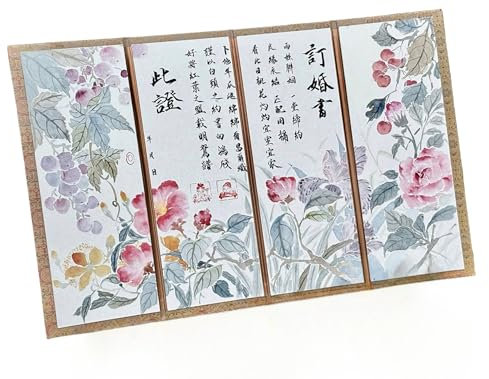 訂婚書
兩姓聯姻 一堂締約
良緣永結 匹配同稱
看此日桃花灼灼宜室宜家
卜他年瓜瓞綿綿爾昌爾熾
謹以白頭之約書向鴻箋
好將紅葉之盟載明鴛譜
此證
年 月 日